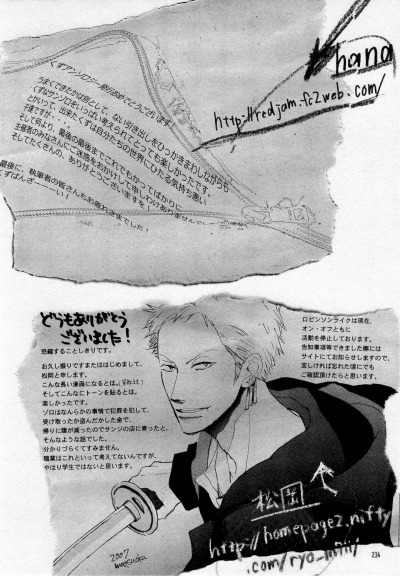 hana
http://redjam.fc2web.com/
くずサンゾロご一読ありがとうございます。
うまくできたかは別として、ない引き出しをひっかきまわしながらも
くずなサンゾロをいっぱい考えられてとっても楽しかったです。
とかいって、出来たくずは自分たちの世界にひたる気持ち悪い
子達ですが…
そして何より、最後の最後までこれでもかってばかりに
主催者のみなさんにご迷惑をおかけして申しわけありませんでした…
そしてたくさんの、ありがとうございますを!
最後に、執筆者の皆さんもお疲れさまでした!
くずばんざーーーい!
どうもありがとう
ございました!
恐縮することしきりです。
お久し振りですまたははじめまして、
松岡と申します。
こんな長い漫画になるとは。
そしてこんなにトーンを貼るとは。
楽しかったです。
ゾロはなんらかの事情で犯罪を犯して、
受け取ったか盗んだかした金で、
帰りに腹が減ったのでサンジの店に寄ったと、
そんなような話でした。
分かりづらくてすみません。
職業はこれといって考えてないんですが、
やはり学生ではないと思います。
ロビンソンライクは現在、
オン・オフともに
活動を停止しております。
告知事項等できました際には
サイトにてお知らせしますので、
宜しければ忘れた頃にでも
ご確認頂けたらと思います。
松岡
http://homepage2.nifty
.com/ryo_mnii/
2007
matsuoka
234